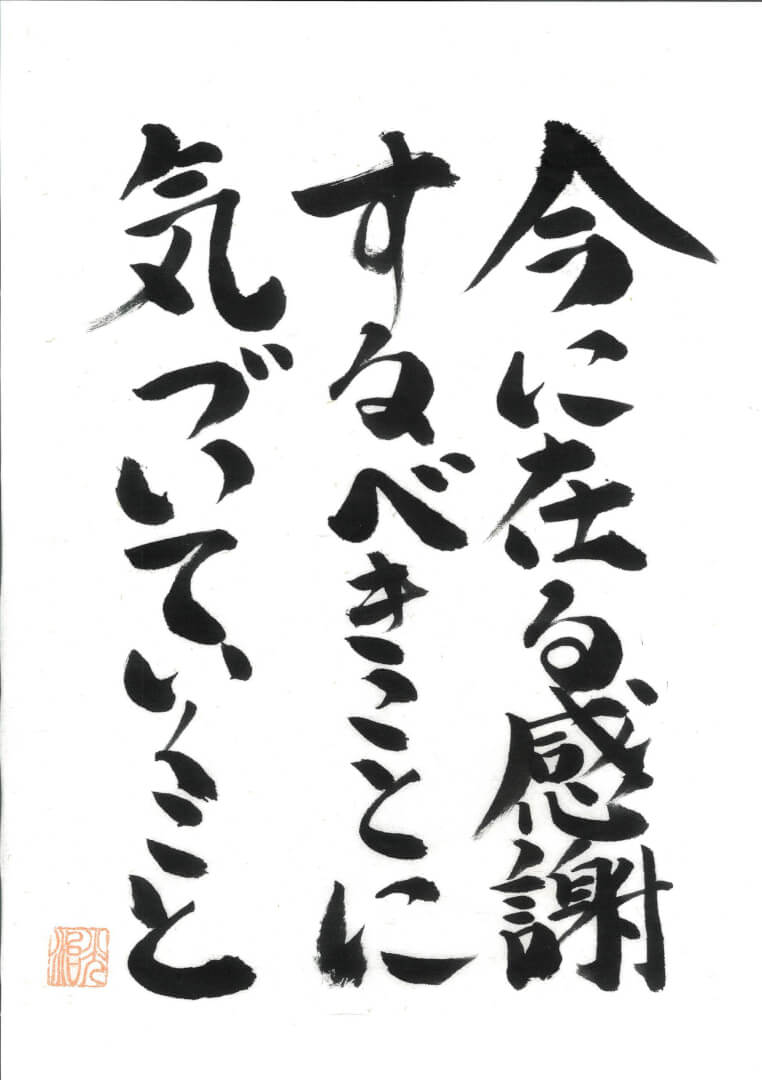 今に在る感謝
するべきことに
気づいていくこと